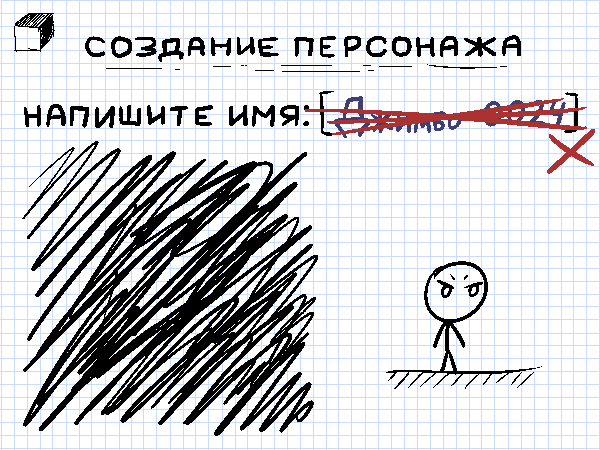 СОЗДАНИЕ ПЕРСОНАЖА
НАПИШИТЕ ИМЯ: [Джимбо 0024]